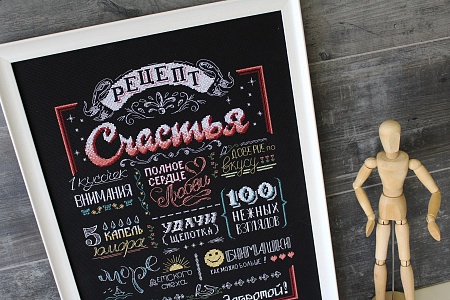 РЕЦЕПТ
Счастья
1 кусочек
ВНИМАНИЯ
ПОЛНОЕ
СЕРДЦЕ
Любви
ДОВЕРИЕ по
вкусу
5 КАПЕЛЬ
юмора
УДАЧИ
(ЩЕПОТКА)
100
НЕЖНЫХ
ВЗГЛЯДОВ
море
ДЕТСКОГО
смеха
ОБНИМАШКИ
КАК МОЖНО БОЛЬШЕ!